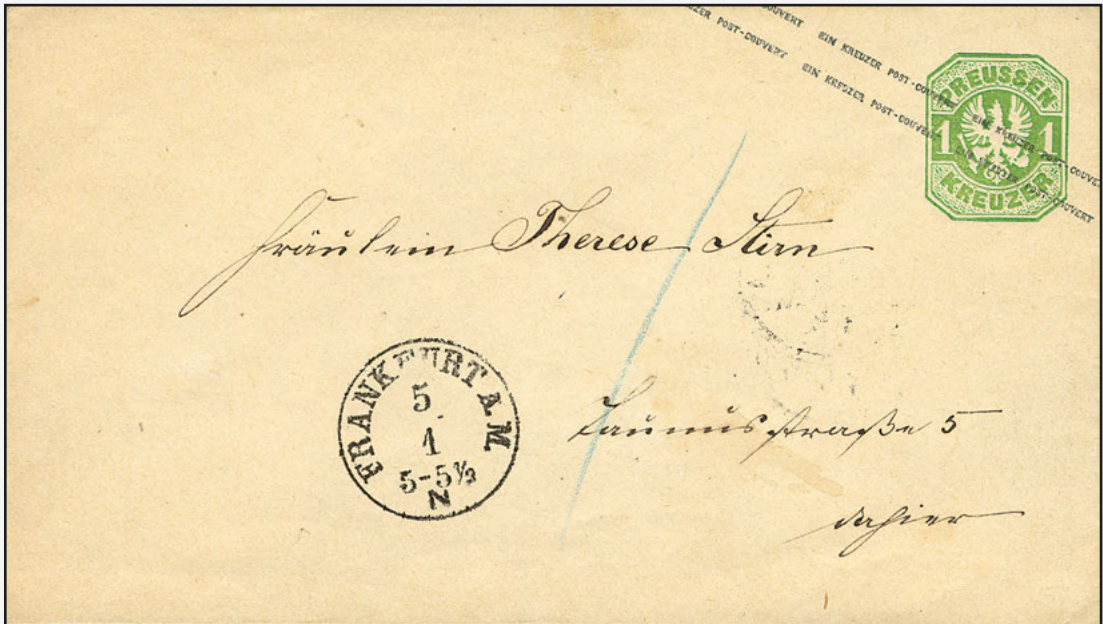 EIN KREUZER POST-COUVERT EIN KREUZER POST-COUVERT
EIN KREUZER POST-COUVERT EIN KREUZER POST-COUVERT
PREUSSEN
1 1
KREUZER
Fräulein Therese Stirn
FRANKFURT A. M.
5
1
5-5½
N
Taunusstraße 5
dahier